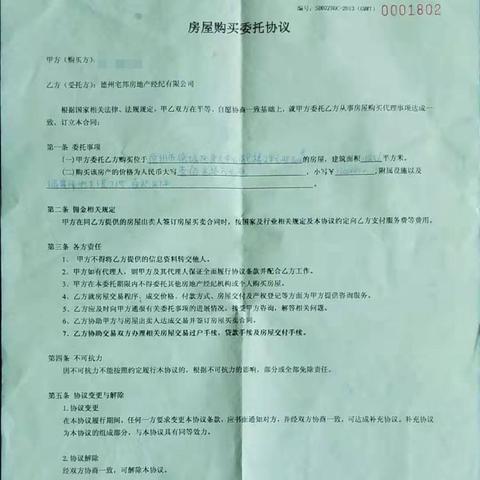 编号：
0001802
房屋购买委托协议
甲方（购买方）：
乙方（受托方）：德州宅邦房地产经纪有限公司
根据国家相关法律、法规规定，甲乙双方在平等、自愿协商一致基础上，就甲方委托乙方从事房屋购买代理事项达成一
致，订立本合同：
第一条 委托事项
（一）甲方委托乙方购买位于 的房屋，建筑面积 平方米。
（二）购买该房产的价格为人民币大写 ，小写￥ ，附属设施以及
第二条 佣金相关规定
甲方在同乙方提供的房屋出卖人签订房屋买卖合同时，按国家及行业相关规定及本协议约定向乙方支付服务费等费用。
第三条 各方责任
1、 甲方不得将乙方提供的信息资料转交他人。
2、 甲方如有代理人，则甲方及其代理人保证全面履行协议条款并配合乙方工作。
3、 甲方在本委托期限内不得委托其他房地产经纪机构或个人购买房屋。
4、 乙方就房屋交易程序、成交价格、付款方式、房屋交付及产权登记等方面为甲方提供咨询服务。
5、 乙方应及时向甲方通报有关委托事项的进展情况，接受甲方咨询，解答相关问题。
6、 乙方协助甲方与房屋出卖人达成交易并签订房屋买卖合同。
7、 乙方协助交易双方办理相关房屋交易过户手续，贷款手续及房屋交付手续。
第四条 不可抗力
因不可抗力不能按照约定履行本协议的，根据不可抗力的影响，部分或全部免除责任。
第五条 协议变更与解除
1.协议变更
在本协议履行期间，任何一方要求变更本协议条款，应书面通知对方，并经双方协商一致，可达成补充协议。补充协议
为本协议的组成部分，与本协议具有同等效力。
2.协议解除
经双方协商一致，可解除本协议。